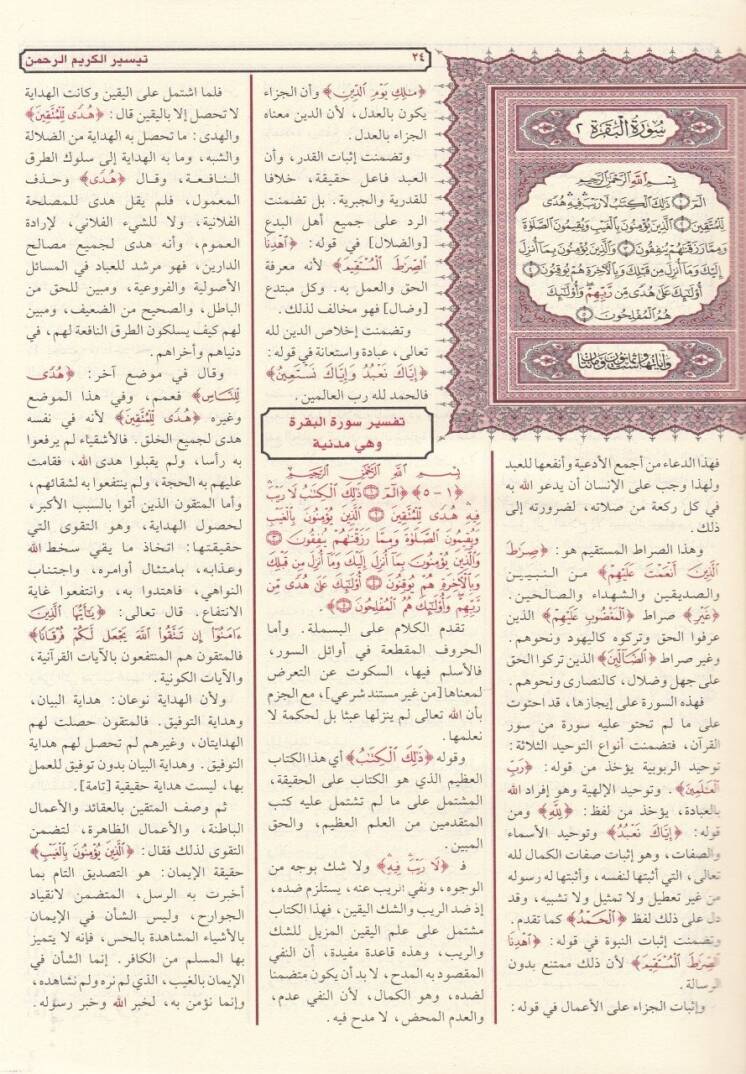 ٢٤
تيسير الكريم الرحمن
سورة البقرة ٢
بسم الله الرحمن الرحيم
الم ۝ ذلك الكتب لا ريب فيه هدى
للمتقين ۝ الذين يؤمنون بالغيب ويقيمون الصلوة
ومما رزقنهم ينفقون ۝ والذين يؤمنون بما أنزل
إليك وما أنزل من قبلك وبالآخرة هم يوقنون ۝
أولئك على هدى من ربهم وأولئك
هم المفلحون ۝
وآياتها ست وثمانون ومائتان
فهذا الدعاء من أجمع الأدعية وأنفعها للعبد
ولهذا وجب على الإنسان أن يدعو الله به
في كل ركعة من صلاته، لضرورته إلى
ذلك.
وهذا الصراط المستقيم هو: ﴿صرط
الذين أنعمت عليهم﴾ من النبيين
والصديقين والشهداء والصالحين.
﴿غير﴾ صراط ﴿المغضوب عليهم﴾ الذين
عرفوا الحق وتركوه كاليهود ونحوهم.
وغير صراط ﴿الضالين﴾ الذين تركوا الحق
على جهل وضلال، كالنصارى ونحوهم.
فهذه السورة على إيجازها، قد احتوت
على ما لم تحتو عليه سورة من سور
القرآن، فتضمنت أنواع التوحيد الثلاثة:
توحيد الربوبية يؤخذ من قوله: ﴿رب
العلمين﴾. وتوحيد الإلهية وهو إفراد الله
بالعبادة، يؤخذ من لفظ: ﴿لله﴾ ومن
قوله: ﴿إياك نعبد﴾ وتوحيد الأسماء
والصفات، وهو إثبات صفات الكمال لله
تعالى، التي أثبتها لنفسه، وأثبتها له رسوله
من غير تعطيل ولا تمثيل ولا تشبيه، وقد
دل على ذلك لفظ ﴿الحمد﴾ كما تقدم.
وتضمنت إثبات النبوة في قوله: ﴿اهدنا
الصرط المستقيم﴾ لأن ذلك ممتنع بدون
الرسالة.
وإثبات الجزاء على الأعمال في قوله:
﴿ملك يوم الدين﴾ وأن الجزاء
يكون بالعدل، لأن الدين معناه
الجزاء بالعدل.
وتضمنت إثبات القدر، وأن
العبد فاعل حقيقة، خلافا
للقدرية والجبرية. بل تضمنت
الرد على جميع أهل البدع
[والضلال] في قوله: ﴿اهدنا
الصرط المستقيم﴾ لأنه معرفة
الحق والعمل به. وكل مبتدع
[وضال] فهو مخالف لذلك.
وتضمنت إخلاص الدين لله
تعالى، عبادة واستعانة في قوله:
﴿إياك نعبد وإياك نستعين﴾
فالحمد لله رب العالمين.
تفسير سورة البقرة
وهي مدنية
بسم الله الرحمن الرحيم
﴿١-٥﴾ ﴿الم ۝ ذلك الكتب لا ريب
فيه هدى للمتقين ۝ الذين يؤمنون بالغيب
ويقيمون الصلوة ومما رزقنهم ينفقون ۝
والذين يؤمنون بما أنزل إليك وما أنزل من قبلك
وبالآخرة هم يوقنون ۝ أولئك على هدى من
ربهم وأولئك هم المفلحون ۝﴾
تقدم الكلام على البسملة. وأما
الحروف المقطعة في أوائل السور،
فالأسلم فيها، السكوت عن التعرض
لمعناها [من غير مستند شرعي]، مع الجزم
بأن الله تعالى لم ينزلها عبثا بل لحكمة لا
نعلمها.
وقوله ﴿ذلك الكتب﴾ أي هذا الكتاب
العظيم الذي هو الكتاب على الحقيقة،
المشتمل على ما لم تشتمل عليه كتب
المتقدمين من العلم العظيم، والحق
المبين.
فـ ﴿لا ريب فيه﴾ ولا شك بوجه من
الوجوه، ونفي الريب عنه، يستلزم ضده،
إذ ضد الريب والشك اليقين، فهذا الكتاب
مشتمل على علم اليقين المزيل للشك
والريب، وهذه قاعدة مفيدة، أن النفي
المقصود به المدح، لا بد أن يكون متضمنا
لضده، وهو الكمال، لأن النفي عدم،
والعدم المحض، لا مدح فيه.
فلما اشتمل على اليقين وكانت الهداية
لا تحصل إلا باليقين قال: ﴿هدى للمتقين﴾
والهدى: ما تحصل به الهداية من الضلالة
والشبه، وما به الهداية إلى سلوك الطرق
النافعة، وقال ﴿هدى﴾ وحذف
المعمول، فلم يقل هدى للمصلحة
الفلانية، ولا للشيء الفلاني، لإرادة
العموم، وأنه هدى لجميع مصالح
الدارين، فهو مرشد للعباد في المسائل
الأصولية والفروعية، ومبين للحق من
الباطل، والصحيح من الضعيف، ومبين
لهم كيف يسلكون الطرق النافعة لهم، في
دنياهم وأخراهم.
وقال في موضع آخر: ﴿هدى
للناس﴾ فعمم، وفي هذا الموضع
وغيره ﴿هدى للمتقين﴾ لأنه في نفسه
هدى لجميع الخلق. فالأشقياء لم يرفعوا
به رأسا، ولم يقبلوا هدى الله، فقامت
عليهم به الحجة، ولم ينتفعوا به لشقائهم،
وأما المتقون الذين أتوا بالسبب الأكبر،
لحصول الهداية، وهو التقوى التي
حقيقتها: اتخاذ ما يقي سخط الله
وعذابه، بامتثال أوامره، واجتناب
النواهي، فاهتدوا به، وانتفعوا غاية
الانتفاع. قال تعالى: ﴿يأيها الذين
ءامنوا إن تتقوا الله يجعل لكم فرقانا﴾
فالمتقون هم المنتفعون بالآيات القرآنية،
والآيات الكونية.
ولأن الهداية نوعان: هداية البيان،
وهداية التوفيق. فالمتقون حصلت لهم
الهدايتان، وغيرهم لم تحصل لهم هداية
التوفيق. وهداية البيان بدون توفيق للعمل
بها، ليست هداية حقيقية [تامة].
ثم وصف المتقين بالعقائد والأعمال
الباطنة، والأعمال الظاهرة، لتضمن
التقوى لذلك فقال: ﴿الذين يؤمنون بالغيب﴾
حقيقة الإيمان: هو التصديق التام بما
أخبرت به الرسل، المتضمن لانقياد
الجوارح، وليس الشأن في الإيمان
بالأشياء المشاهدة بالحس، فإنه لا يتميز
بها المسلم من الكافر. إنما الشأن في
الإيمان بالغيب، الذي لم نره ولم نشاهده،
وإنما نؤمن به، لخبر الله وخبر رسوله.